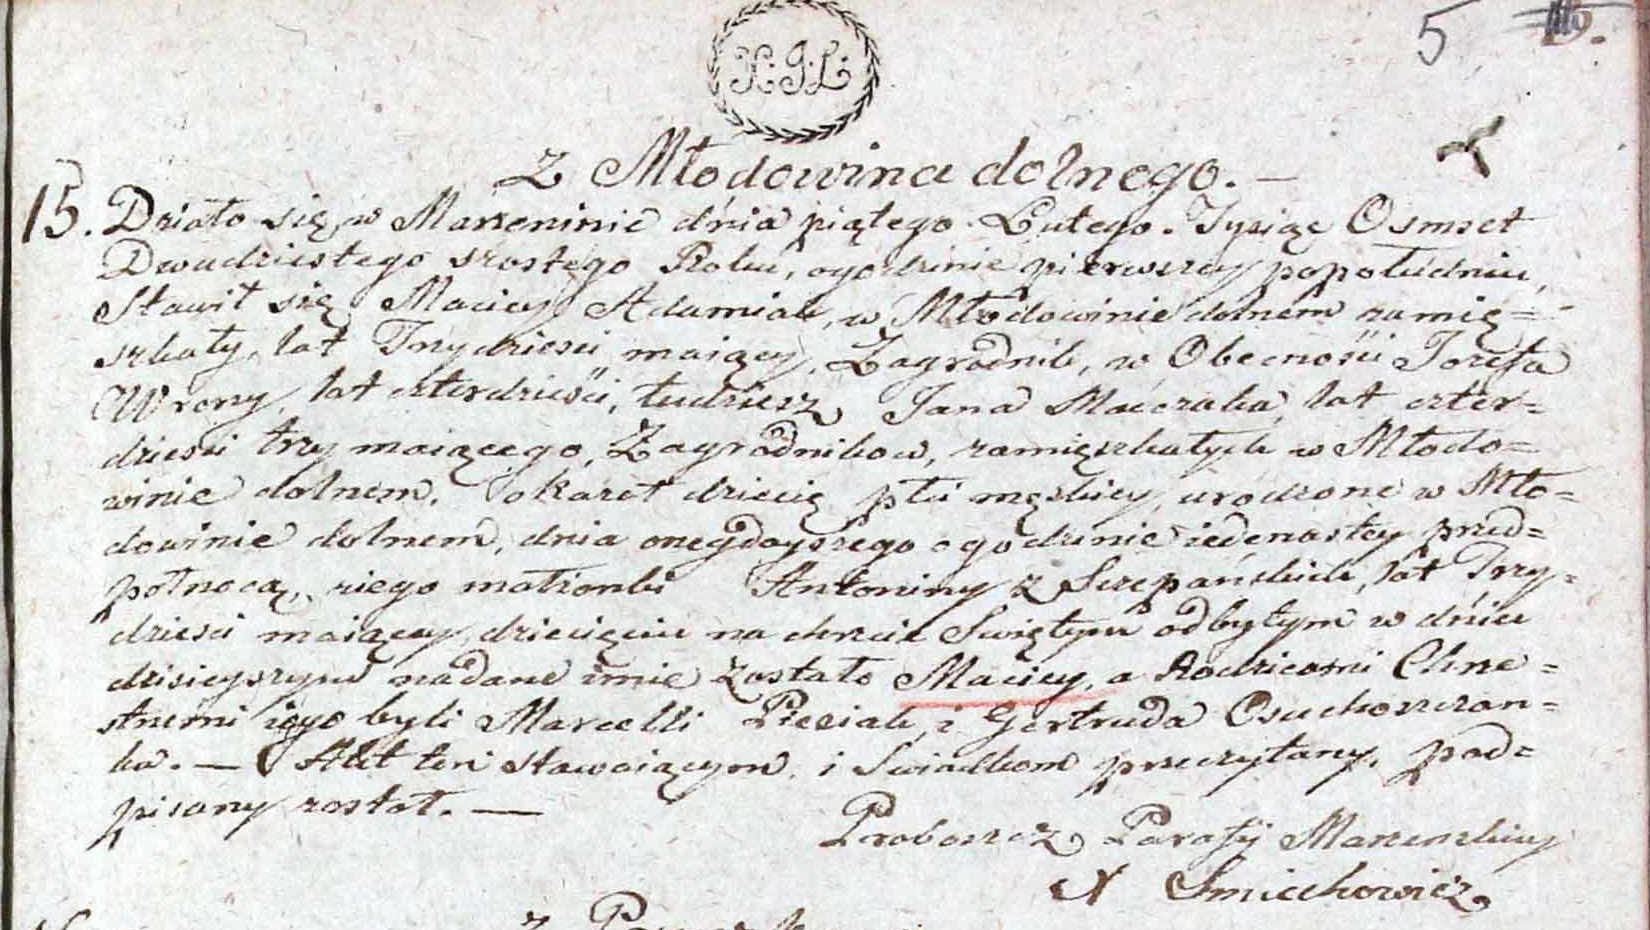 5
X. J. L.
Z Młodowina dolnego. —
15. Działo się w Marzeninie dnia piątego Lutego. Tysiąc Osmset
Dwudziestego szostego Roku, ogodzinie pierwszey popołudniu,
Stawił się Maciey Adamiak, w Młodowinie dolnem zamię=
szkały, lat Trzydzieści maiący, Zagrodnik, w Obecności Jozefa
Wrony, lat czterdzieści, tudziesz Jana Maćczaka lat czter=
dzieści trzy maiącego, Zagrodnikow, zamięszkałych w Młodo=
winie dolnem. okazał dziecię płci męskiey, urodzone w Mło=
dowinie dolnem, dnia onegdayszego ogodzinie iedenastey przed=
połnocą, ziego małżonki Antoniny z Szczepańskich, lat Trzy=
dzieści maiącey, dziecięciu na chrzcie Swiętym odbytym w dniu
dzisieyszym nadane imie zostało Maciey, a Rodzicami Chrze=
stnemi iego byli Marcelli Pieciak, i Gertruda Osuchoszczan=
ka. — Akt ten stawaiącym, i Swiadkom przeczytany, pod=
pisany został. —
Proboszcz Parafij Marzenskiey
X Smiechowicz
z